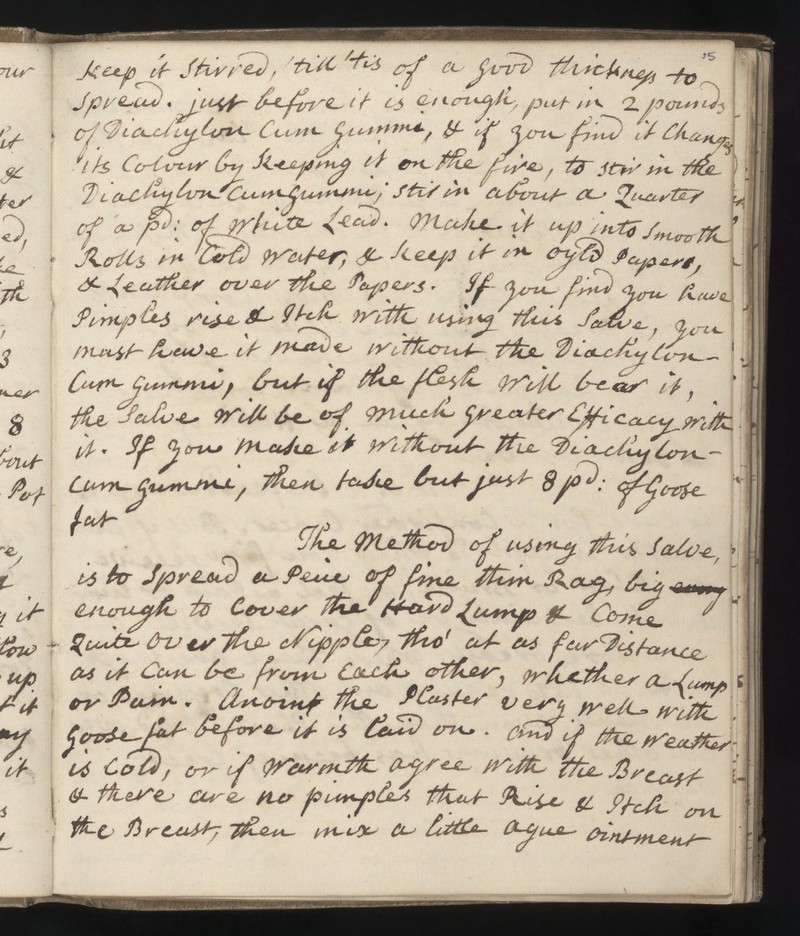 15
Keep it Stirred, 'till 'tis of a good thickness to
Spread. just before it is enough, put in 2 pounds
of Diachylon Cum Gummi, & if you find it Changes
its Colour by Keeping it on the fire, to stir in the
Diachylon Cum gummi; stir in about a Quarter
of a pd: of White Lead. Make it up into Smooth
Rolls in Cold Water, & Keep it in oyld Papers,
& Leather over the Papers. If you find you have
Pimples rise & Itch with using this Salve, you
must have it made without the Diachylon-
Cum Gummi, but if the flesh will bear it,
the Salve will be of much greater Efficacy with
it. If you make it without the Diachylon-
Cum gummi, then take but just 8 pd: of Goose
fat
The Method of using this Salve,
is to Spread a Peice of fine thin Rag, big
enough to Cover the Hard Lump & Come
Quite over the Nipple, tho' at as far Distance
as it Can be from Each other, whether a Lump
or Pain. Anoint the Plaster very well with
Goose fat before it is laid on. and if the weather
is Cold, or if Warmth agree with the Breast
& there are no pimples that Rise & Itch on
the Breast, then mix a little ague ointment